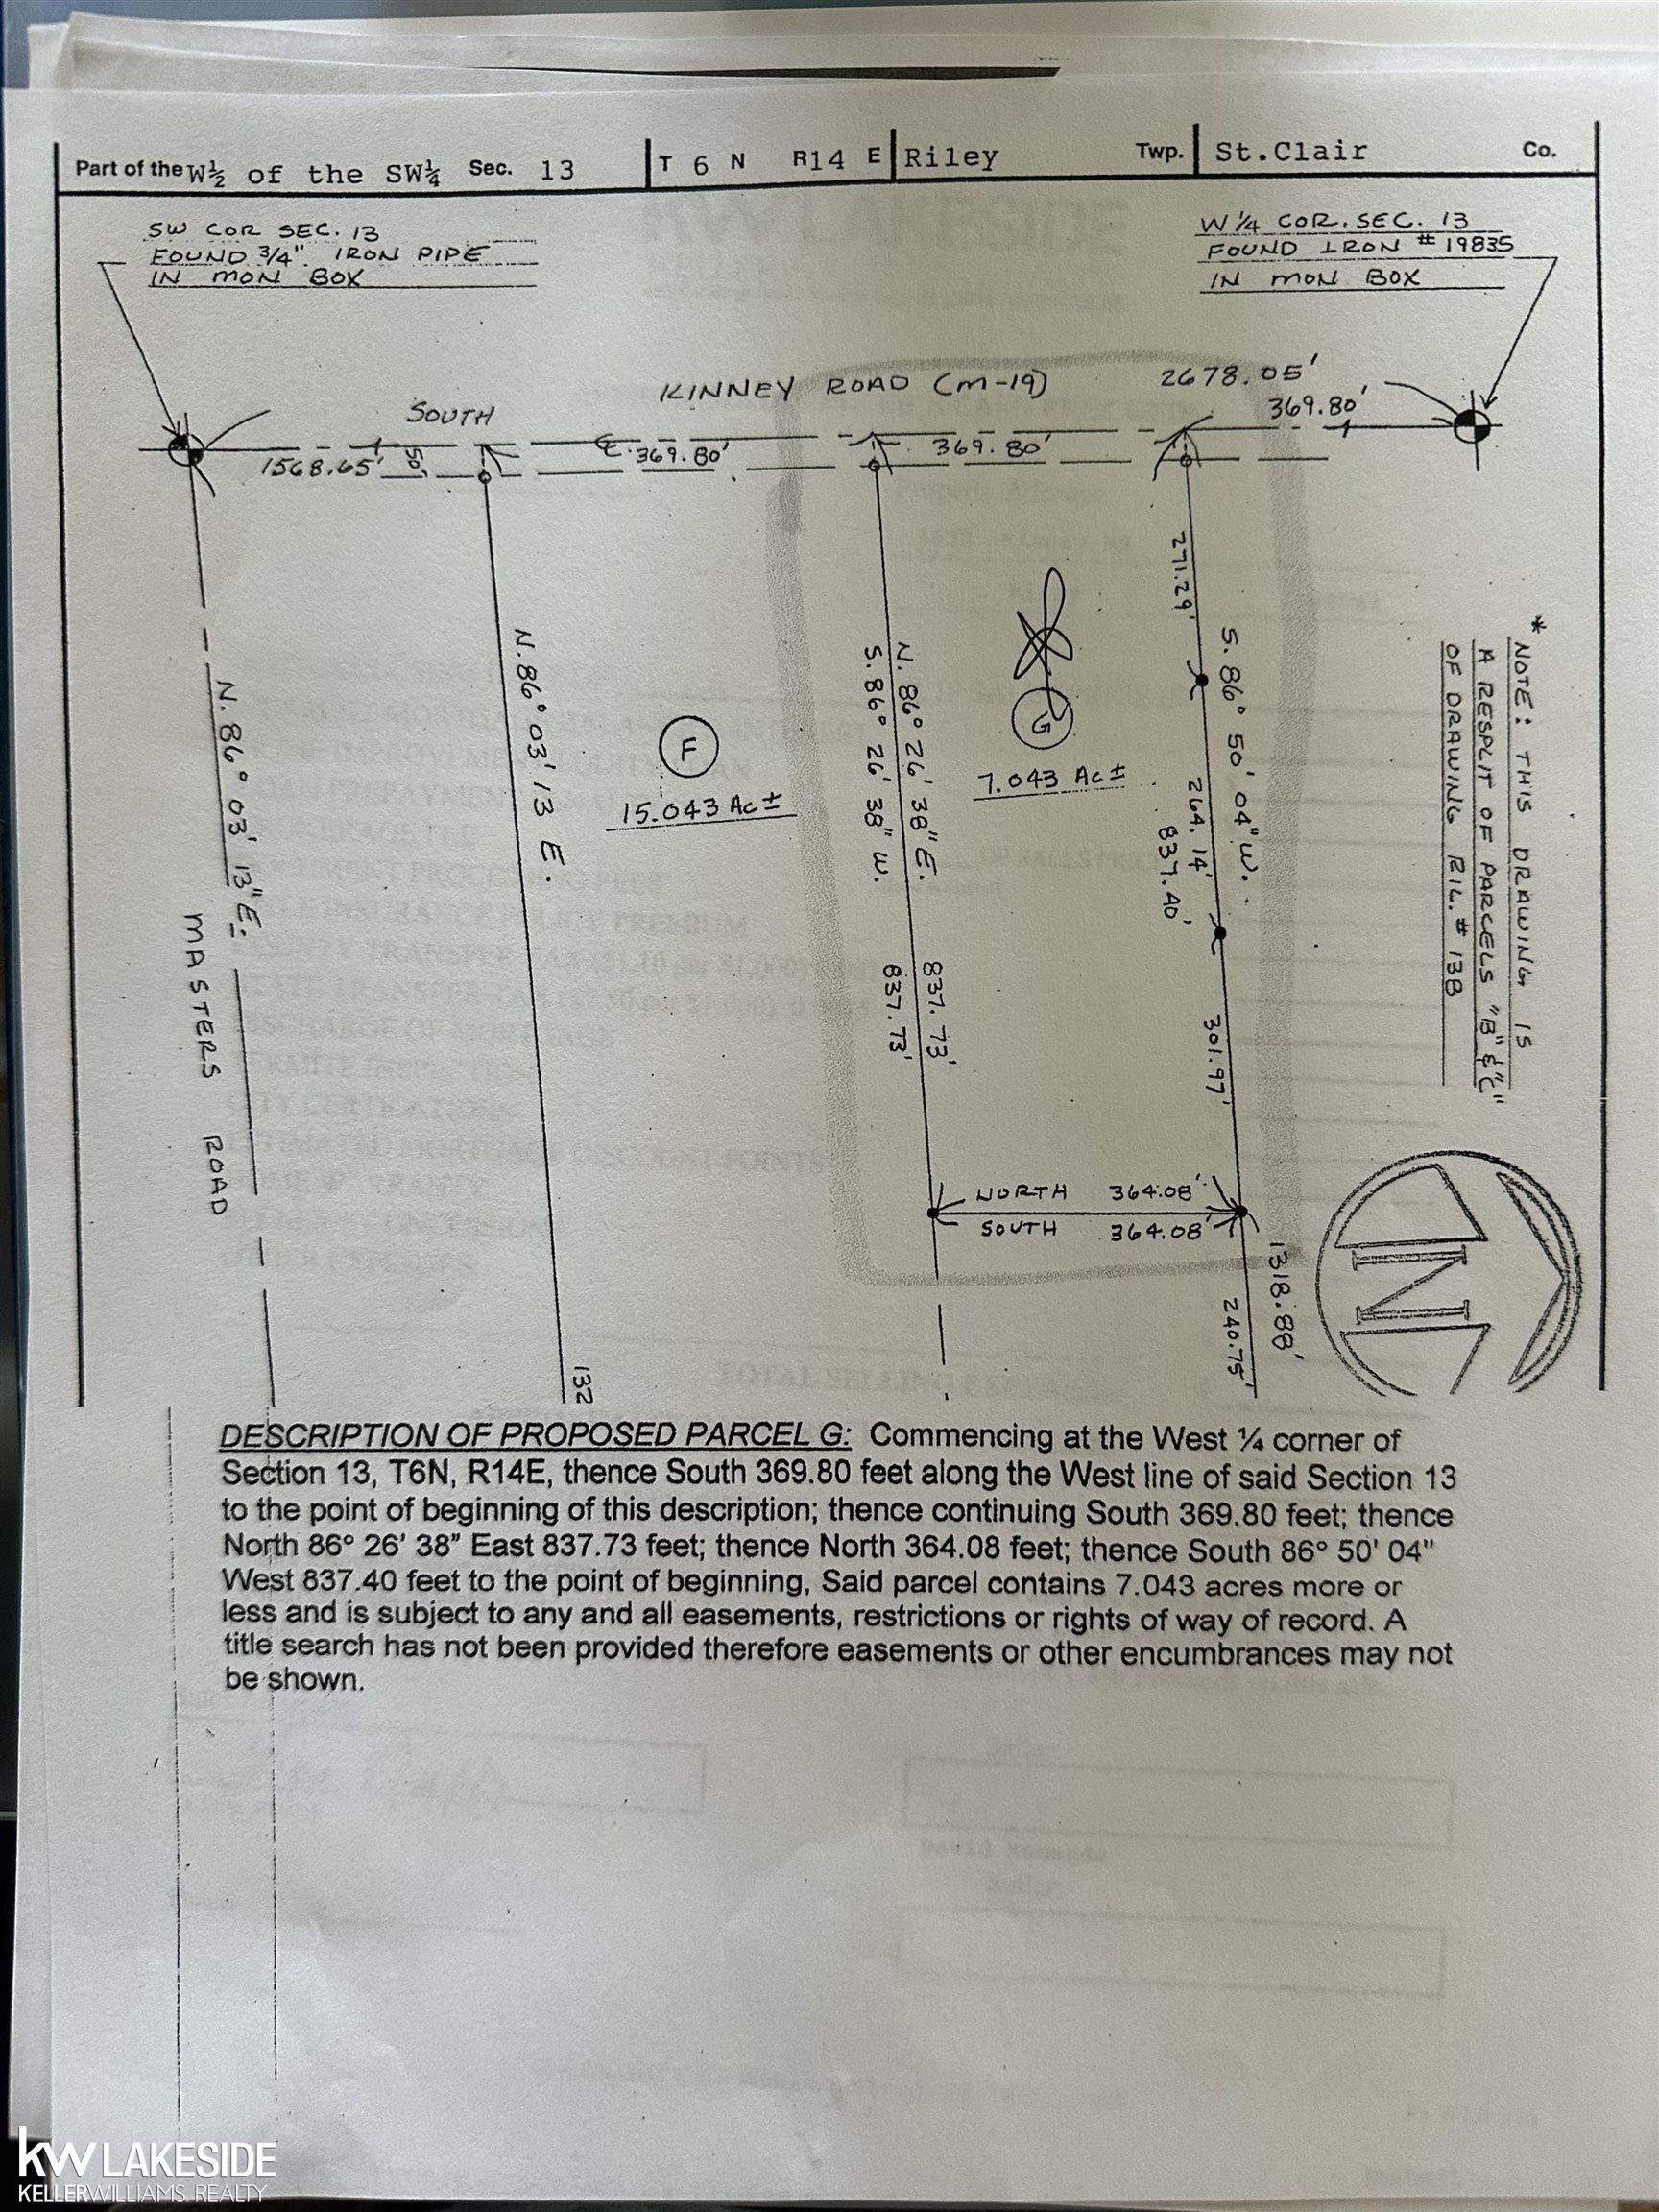 Part of the W½ of the SW¼ Sec. 13 T 6 N R14 E Riley Twp. St.Clair Co.
SW COR SEC. 13
FOUND 3/4" IRON PIPE
IN MON BOX
W 1/4 COR. SEC. 13
FOUND IRON # 19835
IN MON BOX
KINNEY ROAD (M-19)
2678.05'
369.80'
SOUTH
1568.65'
50'
℄ 369.80'
369.80'
271.29'
S. 86° 50' 04" W.
264.14'
837.40'
301.97'
1318.88'
240.75'
* NOTE: THIS DRAWING IS
A RESPLIT OF PARCELS "B" & "C"
OF DRAWING RIL. # 13B
N. 86° 26' 38" E. 837.73'
S. 86° 26' 38" W. 837.73'
G
7.043 Ac±
F
15.043 Ac±
N. 86° 03' 13 E.
132
N. 86° 03' 13" E.
MASTERS ROAD
NORTH 364.08'
SOUTH 364.08'
N
DESCRIPTION OF PROPOSED PARCEL G: Commencing at the West ¼ corner of
Section 13, T6N, R14E, thence South 369.80 feet along the West line of said Section 13
to the point of beginning of this description; thence continuing South 369.80 feet; thence
North 86° 26' 38" East 837.73 feet; thence North 364.08 feet; thence South 86° 50' 04"
West 837.40 feet to the point of beginning, Said parcel contains 7.043 acres more or
less and is subject to any and all easements, restrictions or rights of way of record. A
title search has not been provided therefore easements or other encumbrances may not
be shown.
kw LAKESIDE
KELLERWILLIAMS. REALTY